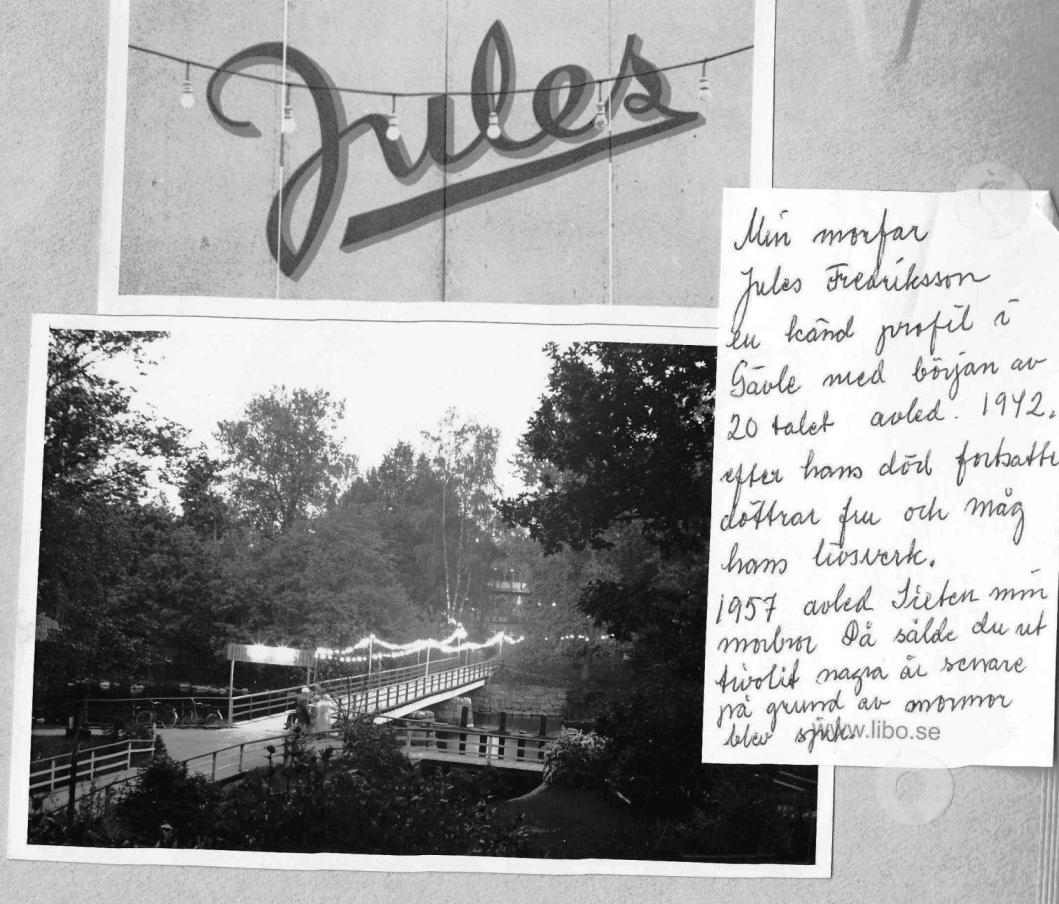 Jules
Min morfar
Jules Fredriksson
en känd profil i
Gävle med början av
20 talet avled. 1942.
efter hans död fortsatte
döttrar fru och måg
hans livsverk.
1957 avled Sixten min
morbror Då sålde du ut
tivolit nagra år senare
på grund av mormor
blev sjuk.
www.libo.se